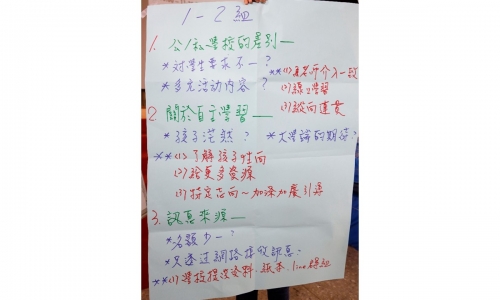 1-2組
1. 公/私學校的差別—
*對學生要求不一?
*多元活動內容?
**(1)
(2)線上學習
(3)縱向連貫
2. 關於自主學習—
*孩子茫然?
*大學端的期待?
**(1)了解孩子性向
(2)給更多資源
(3)特定志向~加深加廣引導
3. 訊息來源—
*名額少—?
*只透過網路接收訊息.
**(1)學校提供資料.紙本.line群組